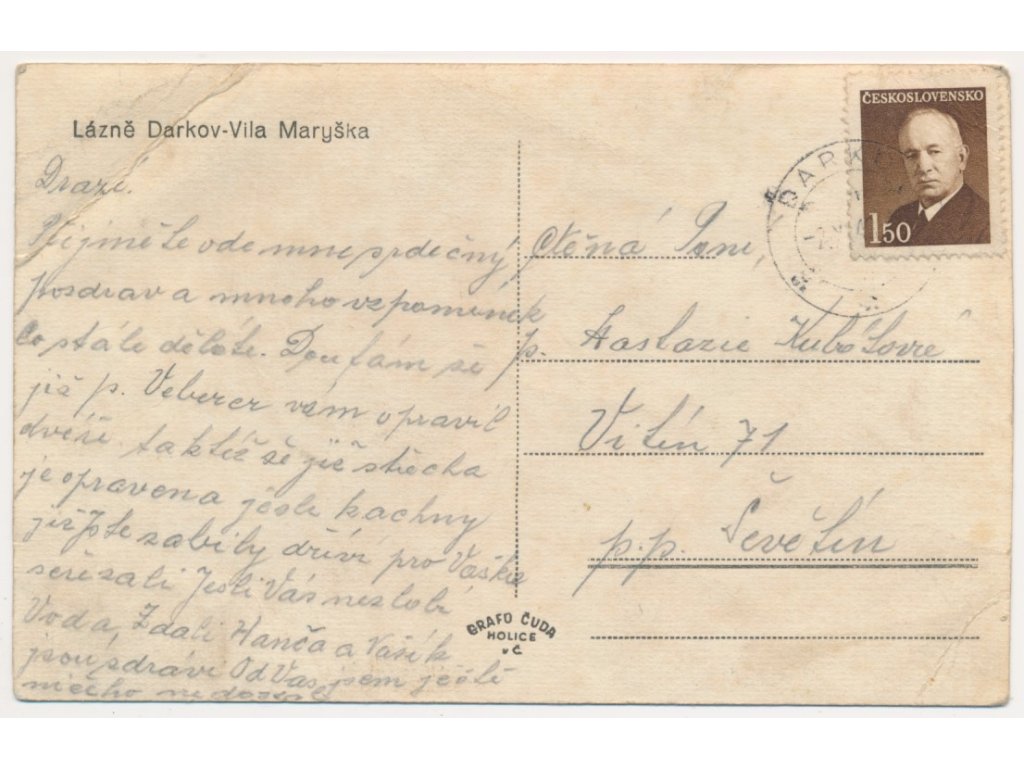 Lázně Darkov-Vila Maryška
Drazí.
Přijměte ode mne srdečný
pozdrav a mnoho vzpomínek
Co stále děláte. Doufám še
již p. Veberer vám opravil
dvéře taktéž še již střecha
je opravena jesli kachny
již jste zabily dříví pro Vaška
seřezali Jesli Vás nezlobí
Voda, Zdali Hanča a Vašík
jsou zdrávi Od Vás jsem ještě
ničeho nedostal
ČESKOSLOVENSKO
1 50
DARK
Ctěná Paní,
p. Anstazie Kubátová
Vitín 71
p.p. Ševětín
GRAFO ČUDA
HOLICE
v Č